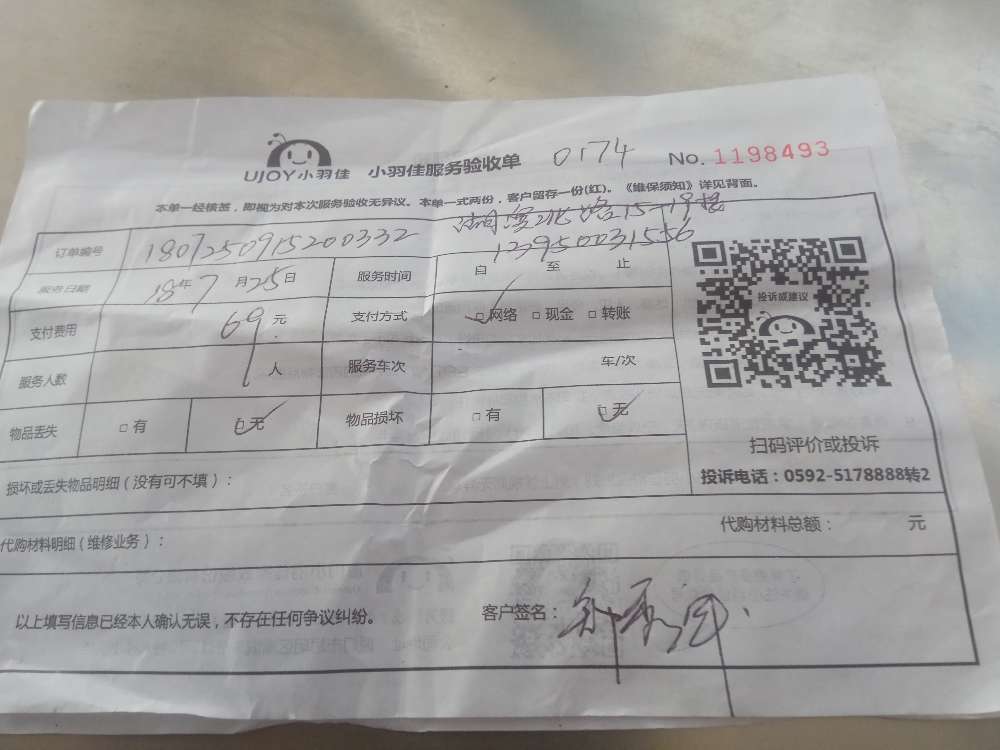 UJOY小羽佳 小羽佳服务验收单 0174 No. 1198493
本单一经核签，即视为对本次服务验收无异议。本单一式两份，客户留存一份(红)。《维保须知》详见背面。
湖滨北路15-19楼
订单编号 1807250915200332 123950031556
服务日期 18年7月25日 服务时间 自 至 止
支付费用 69元 支付方式 □网络 □现金 □转账
投诉或建议
服务人数 1人 服务车次 车/次
物品丢失 □有 □无 物品损坏 □有 □无
扫码评价或投诉
投诉电话：0592-5178888转2
损坏或丢失物品明细（没有可不填）：
代购材料总额： 元
代购材料明细（维修业务）：
以上填写信息已经本人确认无误，不存在任何争议纠纷。 客户签名：